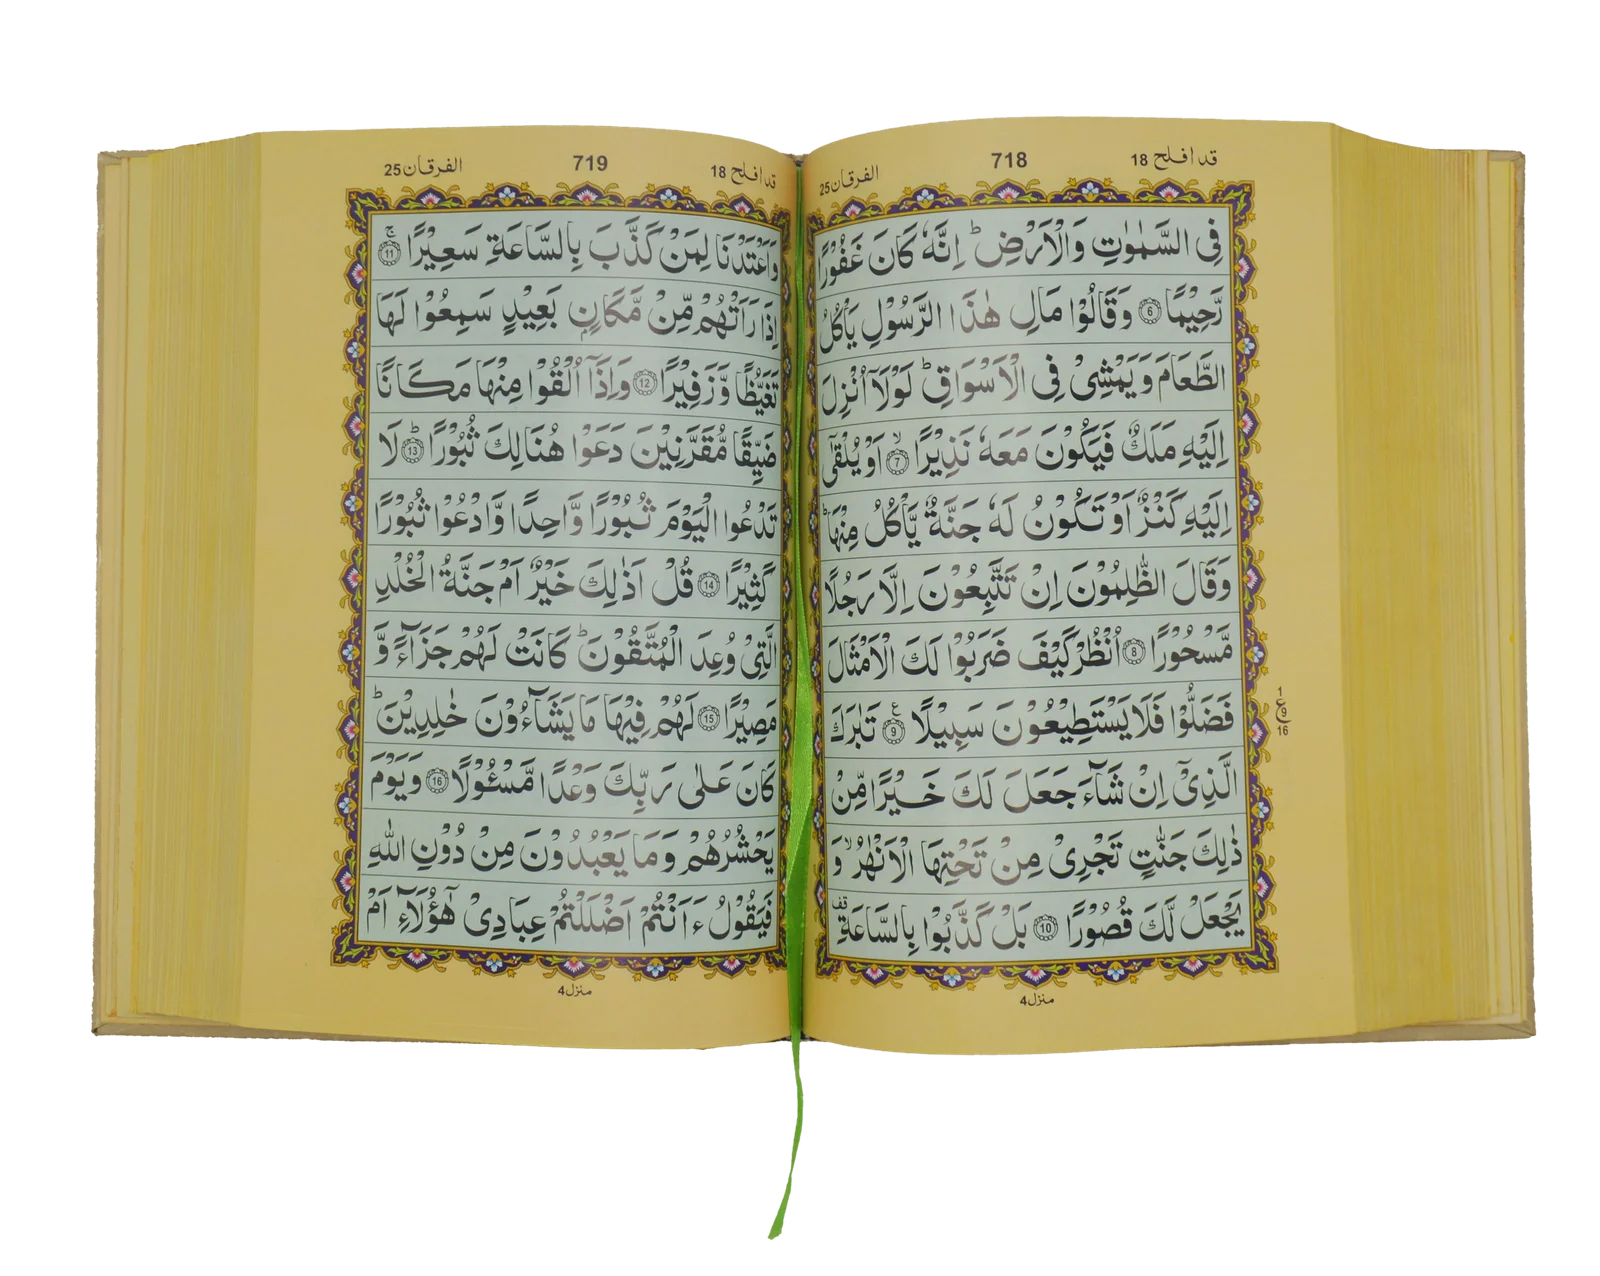 قد افلح 18
718
الفرقان 25
فِی السَّمٰوٰتِ وَالْاَرْضِ ؕ اِنَّهٗ كَانَ غَفُوْرًا
رَّحِیْمًا ﴿6﴾ وَقَالُوْا مَالِ هٰذَا الرَّسُوْلِ یَاْكُلُ
الطَّعَامَ وَیَمْشِیْ فِی الْاَسْوَاقِ ؕ لَوْلَاۤ اُنْزِلَ
اِلَیْهِ مَلَكٌ فَیَكُوْنَ مَعَهٗ نَذِیْرًا ۙ﴿7﴾ اَوْ یُلْقٰۤی
اِلَیْهِ كَنْزٌ اَوْ تَكُوْنُ لَهٗ جَنَّةٌ یَّاْكُلُ مِنْهَا ؕ
وَقَالَ الظّٰلِمُوْنَ اِنْ تَتَّبِعُوْنَ اِلَّا رَجُلًا
مَّسْحُوْرًا ﴿8﴾ اُنْظُرْ كَیْفَ ضَرَبُوْا لَكَ الْاَمْثَالَ
فَضَلُّوْا فَلَا یَسْتَطِیْعُوْنَ سَبِیْلًا ﴿9﴾ ع تَبٰرَكَ
1
ع 9
16
الَّذِیْۤ اِنْ شَآءَ جَعَلَ لَكَ خَیْرًا مِّنْ
ذٰلِكَ جَنّٰتٍ تَجْرِیْ مِنْ تَحْتِهَا الْاَنْهٰرُ ۙ وَ
یَجْعَلْ لَّكَ قُصُوْرًا ﴿10﴾ بَلْ كَذَّبُوْا بِالسَّاعَةِ قف
منزل 4
قد افلح 18
719
الفرقان 25
وَاَعْتَدْنَا لِمَنْ كَذَّبَ بِالسَّاعَةِ سَعِیْرًا ۚ﴿11﴾
اِذَا رَاَتْهُمْ مِّنْ مَّكَانٍۭ بَعِیْدٍ سَمِعُوْا لَهَا
تَغَیُّظًا وَّزَفِیْرًا ﴿12﴾ وَاِذَاۤ اُلْقُوْا مِنْهَا مَكَانًا
ضَیِّقًا مُّقَرَّنِیْنَ دَعَوْا هُنَالِكَ ثُبُوْرًا ؕ﴿13﴾ لَا
تَدْعُوا الْیَوْمَ ثُبُوْرًا وَّاحِدًا وَّادْعُوْا ثُبُوْرًا
كَثِیْرًا ﴿14﴾ قُلْ اَذٰلِكَ خَیْرٌ اَمْ جَنَّةُ الْخُلْدِ
الَّتِیْ وُعِدَ الْمُتَّقُوْنَ ؕ كَانَتْ لَهُمْ جَزَآءً وَّ
مَصِیْرًا ﴿15﴾ لَهُمْ فِیْهَا مَا یَشَآءُوْنَ خٰلِدِیْنَ ؕ
كَانَ عَلٰی رَبِّكَ وَعْدًا مَّسْـُٔوْلًا ﴿16﴾ وَیَوْمَ
یَحْشُرُهُمْ وَمَا یَعْبُدُوْنَ مِنْ دُوْنِ اللّٰهِ
فَیَقُوْلُ ءَاَنْتُمْ اَضْلَلْتُمْ عِبَادِیْ هٰۤؤُلَآءِ اَمْ
منزل 4